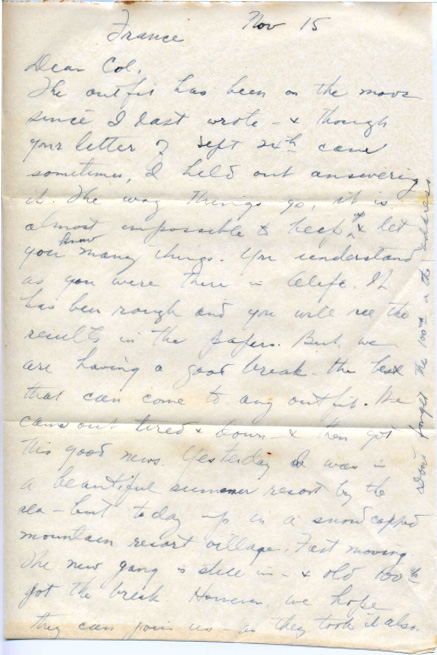 France Nov 15
Dear Col,
The outfit has been on the move
since I last wrote - & though
your letter of Sept 24th came
sometime, I held out answering
it. The way things go, it is
almost impossible to keep up & let
you know many things. You understand
as you were there in life. It
has been rough and you will see the
results in the papers. But, we
are having a good break - the best
that can come to any outfit. We
came out tired & down - & then got
this good news. Yesterday I was in
a beautiful summer resort by the
sea - but today up in a snowcapped
mountain resort village. Fast moving.
The new gang is still in - & old 100th
got the break. However, we hope
they can join us as they took it also.
Don't forget the 100th in the address